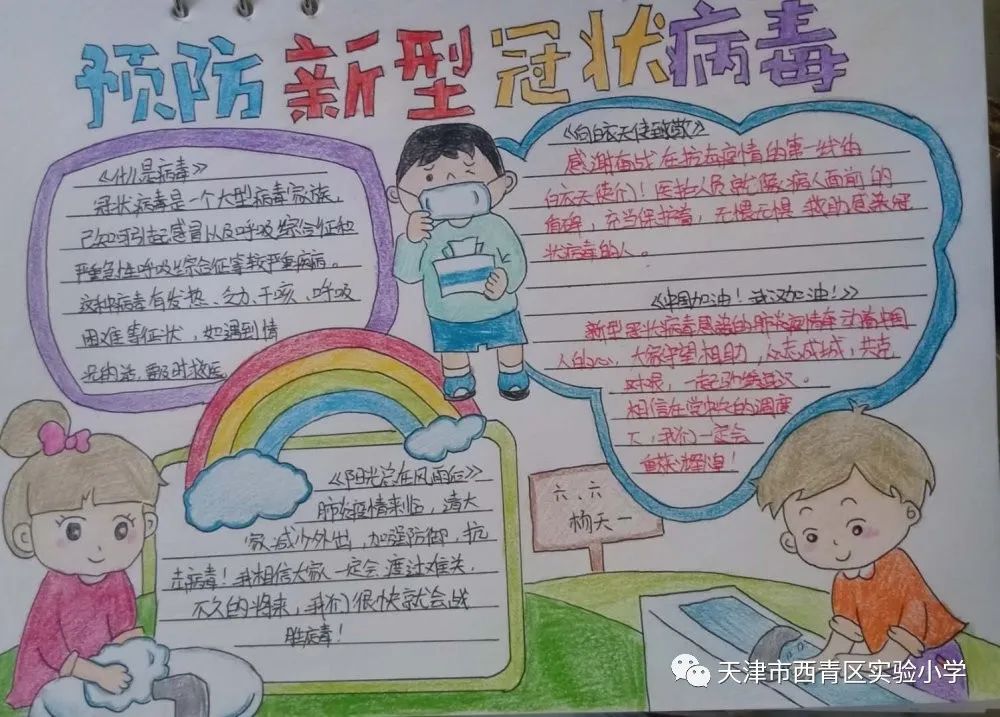 预防新型冠状病毒
《什么是病毒》
冠状病毒是一个大型病毒家族，
己知可引起感冒以及呼吸综合征和
严重急性呼吸综合征等较严重疾病。
这种病毒有发热、乏力、干咳、呼吸
困难等症状，如遇到情
况的话，需及时救医
《向白衣天使致敬》
感谢奋战在抗击疫情的第一线的
白衣天使们！医护人员就像病人面前的
盾牌，充当保护着，无惧无惧 救助感染冠
状病毒的人。
《中国加油！武汉加油！》
新型冠状病毒感染的肺炎疫情牵动着中国
人的心，大家守望相助，众志成城，共克
时艰，一起驰援武汉。
相信在党中央的调度
下，我们一定会
重获辉煌！
《阳光总在风雨后》
肺炎疫情来临，请大
家减少外出，加强防御，抗
击病毒！我相信大家一定会渡过难关，
不久的将来，我们很快就会战
胜病毒！
六、六
杨天一
天津市西青区实验小学